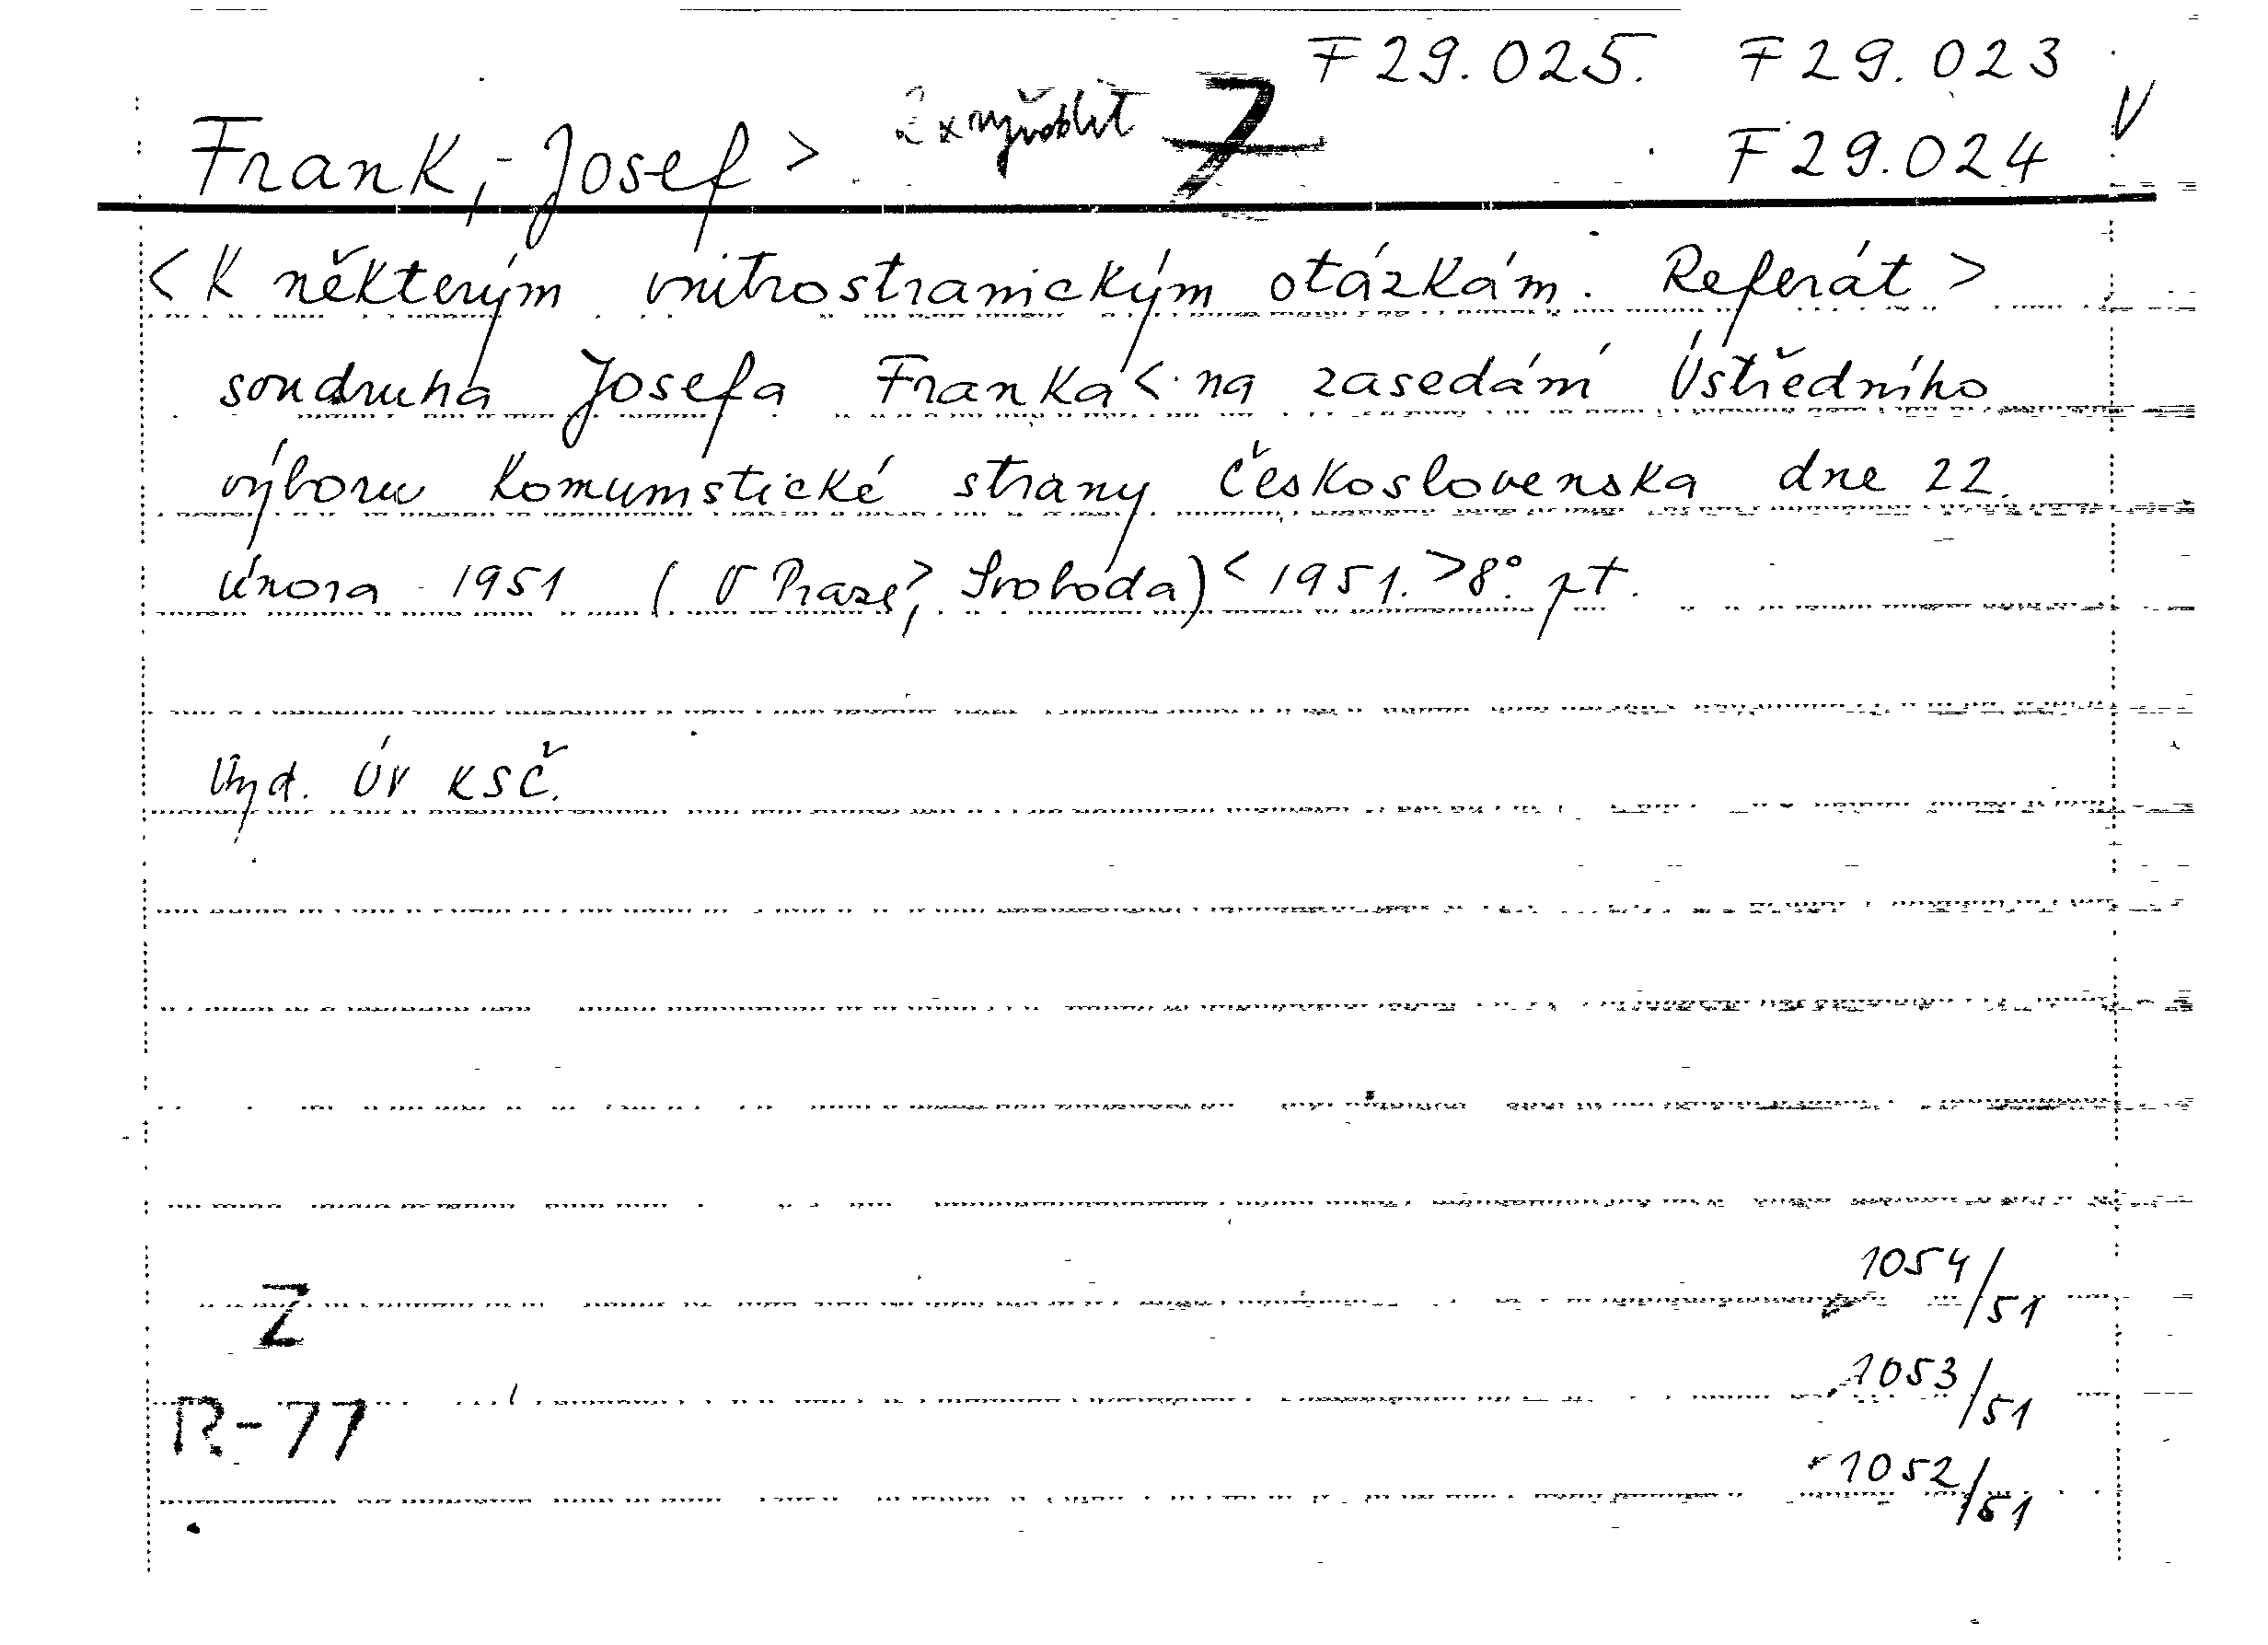 F 29.025. F 29.023
Frank, Josef > 2x vyřadit 7 F 29.024 V
< K některým vnitrostranickým otázkám. Referát >
soudruha Josefa Franka < na zasedání Ústředního
výboru Komunistické strany Československa dne 22.
února 1951 (V Praze, > Svoboda) < 1951. > 8°. pt.
Vyd. ÚV KSČ.
1054/51
Z
1053/51
R-77
1052/51